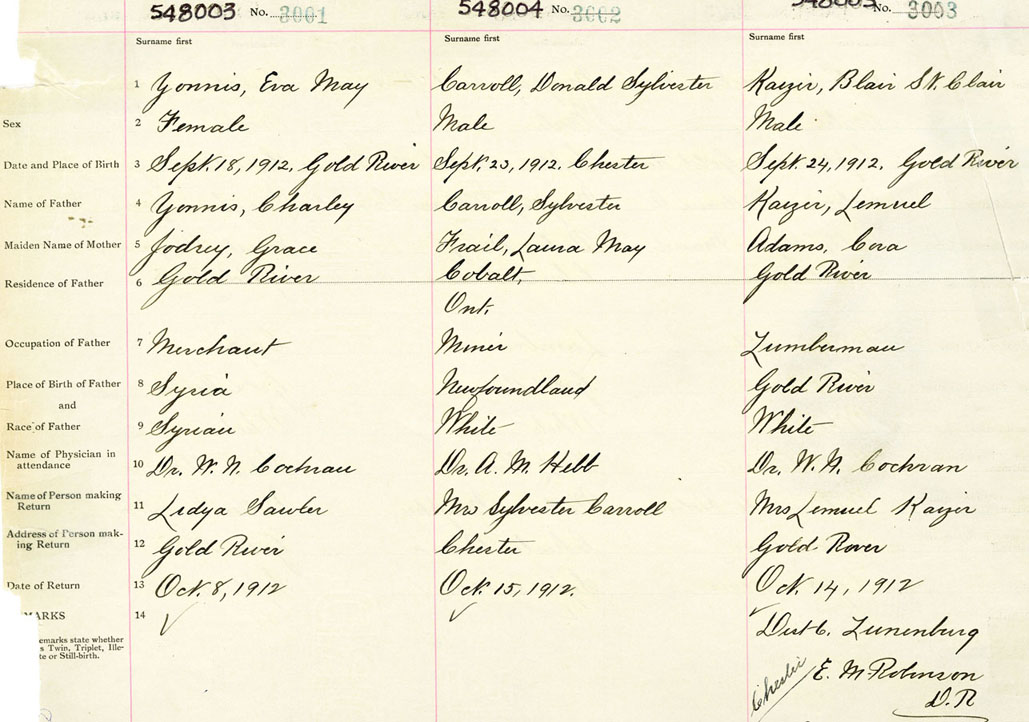 548003 No. 3001 548004 No. 3002 548005 No. 3003
Surname first Surname first Surname first
1 Yonnis, Eva May Carroll, Donald Sylvester Kaizir, Blair St. Clair
Sex 2 Female Male Male
Date and Place of Birth 3 Sept. 18, 1912, Gold River Sept. 23, 1912. Chester Sept 24, 1912. Gold River
Name of Father 4 Yonnis, Charley Carroll, Sylvester Kaizir, Lemuel
Maiden Name of Mother 5 Jodrey, Grace Frail, Laura May Adams, Cora
Residence of Father 6 Gold River Cobalt, Gold River
Ont.
Occupation of Father 7 Merchant Miner Lumberman
Place of Birth of Father 8 Syria Newfoundland Gold River
and
Race of Father 9 Syrian White White
Name of Physician in
attendance 10 Dr. W. N. Cochran Dr. A. M. Hebb Dr. W. N. Cochran
Name of Person making
Return 11 Lidya Sawler Mrs Sylvester Carroll Mrs Lemuel Kaizer
Address of Person mak-
ing Return 12 Gold River Chester Gold Rover
Date of Return 13 Oct. 8, 1912 Oct. 15, 1912. Oct. 14, 1912
MARKS 14
emarks state whether
s Twin, Triplet, Ille-
te or Still-birth.
Dist 6. Lunenburg
Chester E. M Robinson
D. R